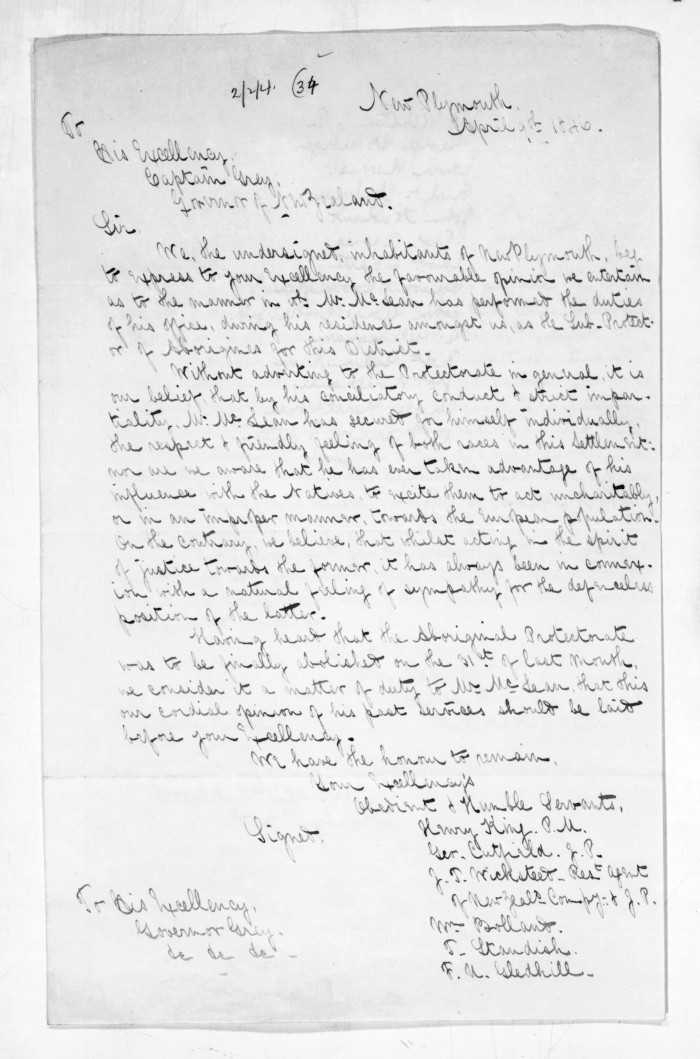 2/2/4. (34
New Plymouth,
April 9th 1846.
To
His Excellency,
Captain Grey,
Governor of New Zealand.
Sir,
We, the undersigned, inhabitants of New Plymouth, beg
to express to your Excellency the favourable opinion we entertain
as to the manner in wh. Mr. McLean has performed the duties
of his office, during his residence amongst us, as the Sub-Protect-
or of Aborigines for this District.
Without adverting to the Protectorate in general, it is
our belief, that by his conciliatory conduct & strict impar-
tiality, Mr. McLean has secured for himself individually,
the respect & friendly feeling of both races in this Settlement:
nor are we aware that he has ever taken advantage of his
influence with the Natives, to excite them to act uncharitably,
or in an improper manner, towards the European population.
On the contrary, we believe, that whilst acting in the spirit
of justice towards the former, it has always been in connex-
ion with a natural feeling of sympathy for the defenceless
position of the latter.
Having heard that the Aboriginal Protectorate
was to be finally abolished on the 31st of last month,
we consider it a matter of duty to Mr. McLean, that this
our cordial opinion of his past services should be laid
before your Excellency.
We have the honour to remain,
Your Excellency's
Obedient & Humble Servants,
Signed.
Henry King. P.M.
Geo. Cutfield. J.P.
J. T. Wicksteed. Rest. Agent
of New Zeald. Compy. & J.P.
Wm Bolland.
T. Standish.
F. U. Gledhill.
To His Excellency,
Governor Grey.
&c &c &c